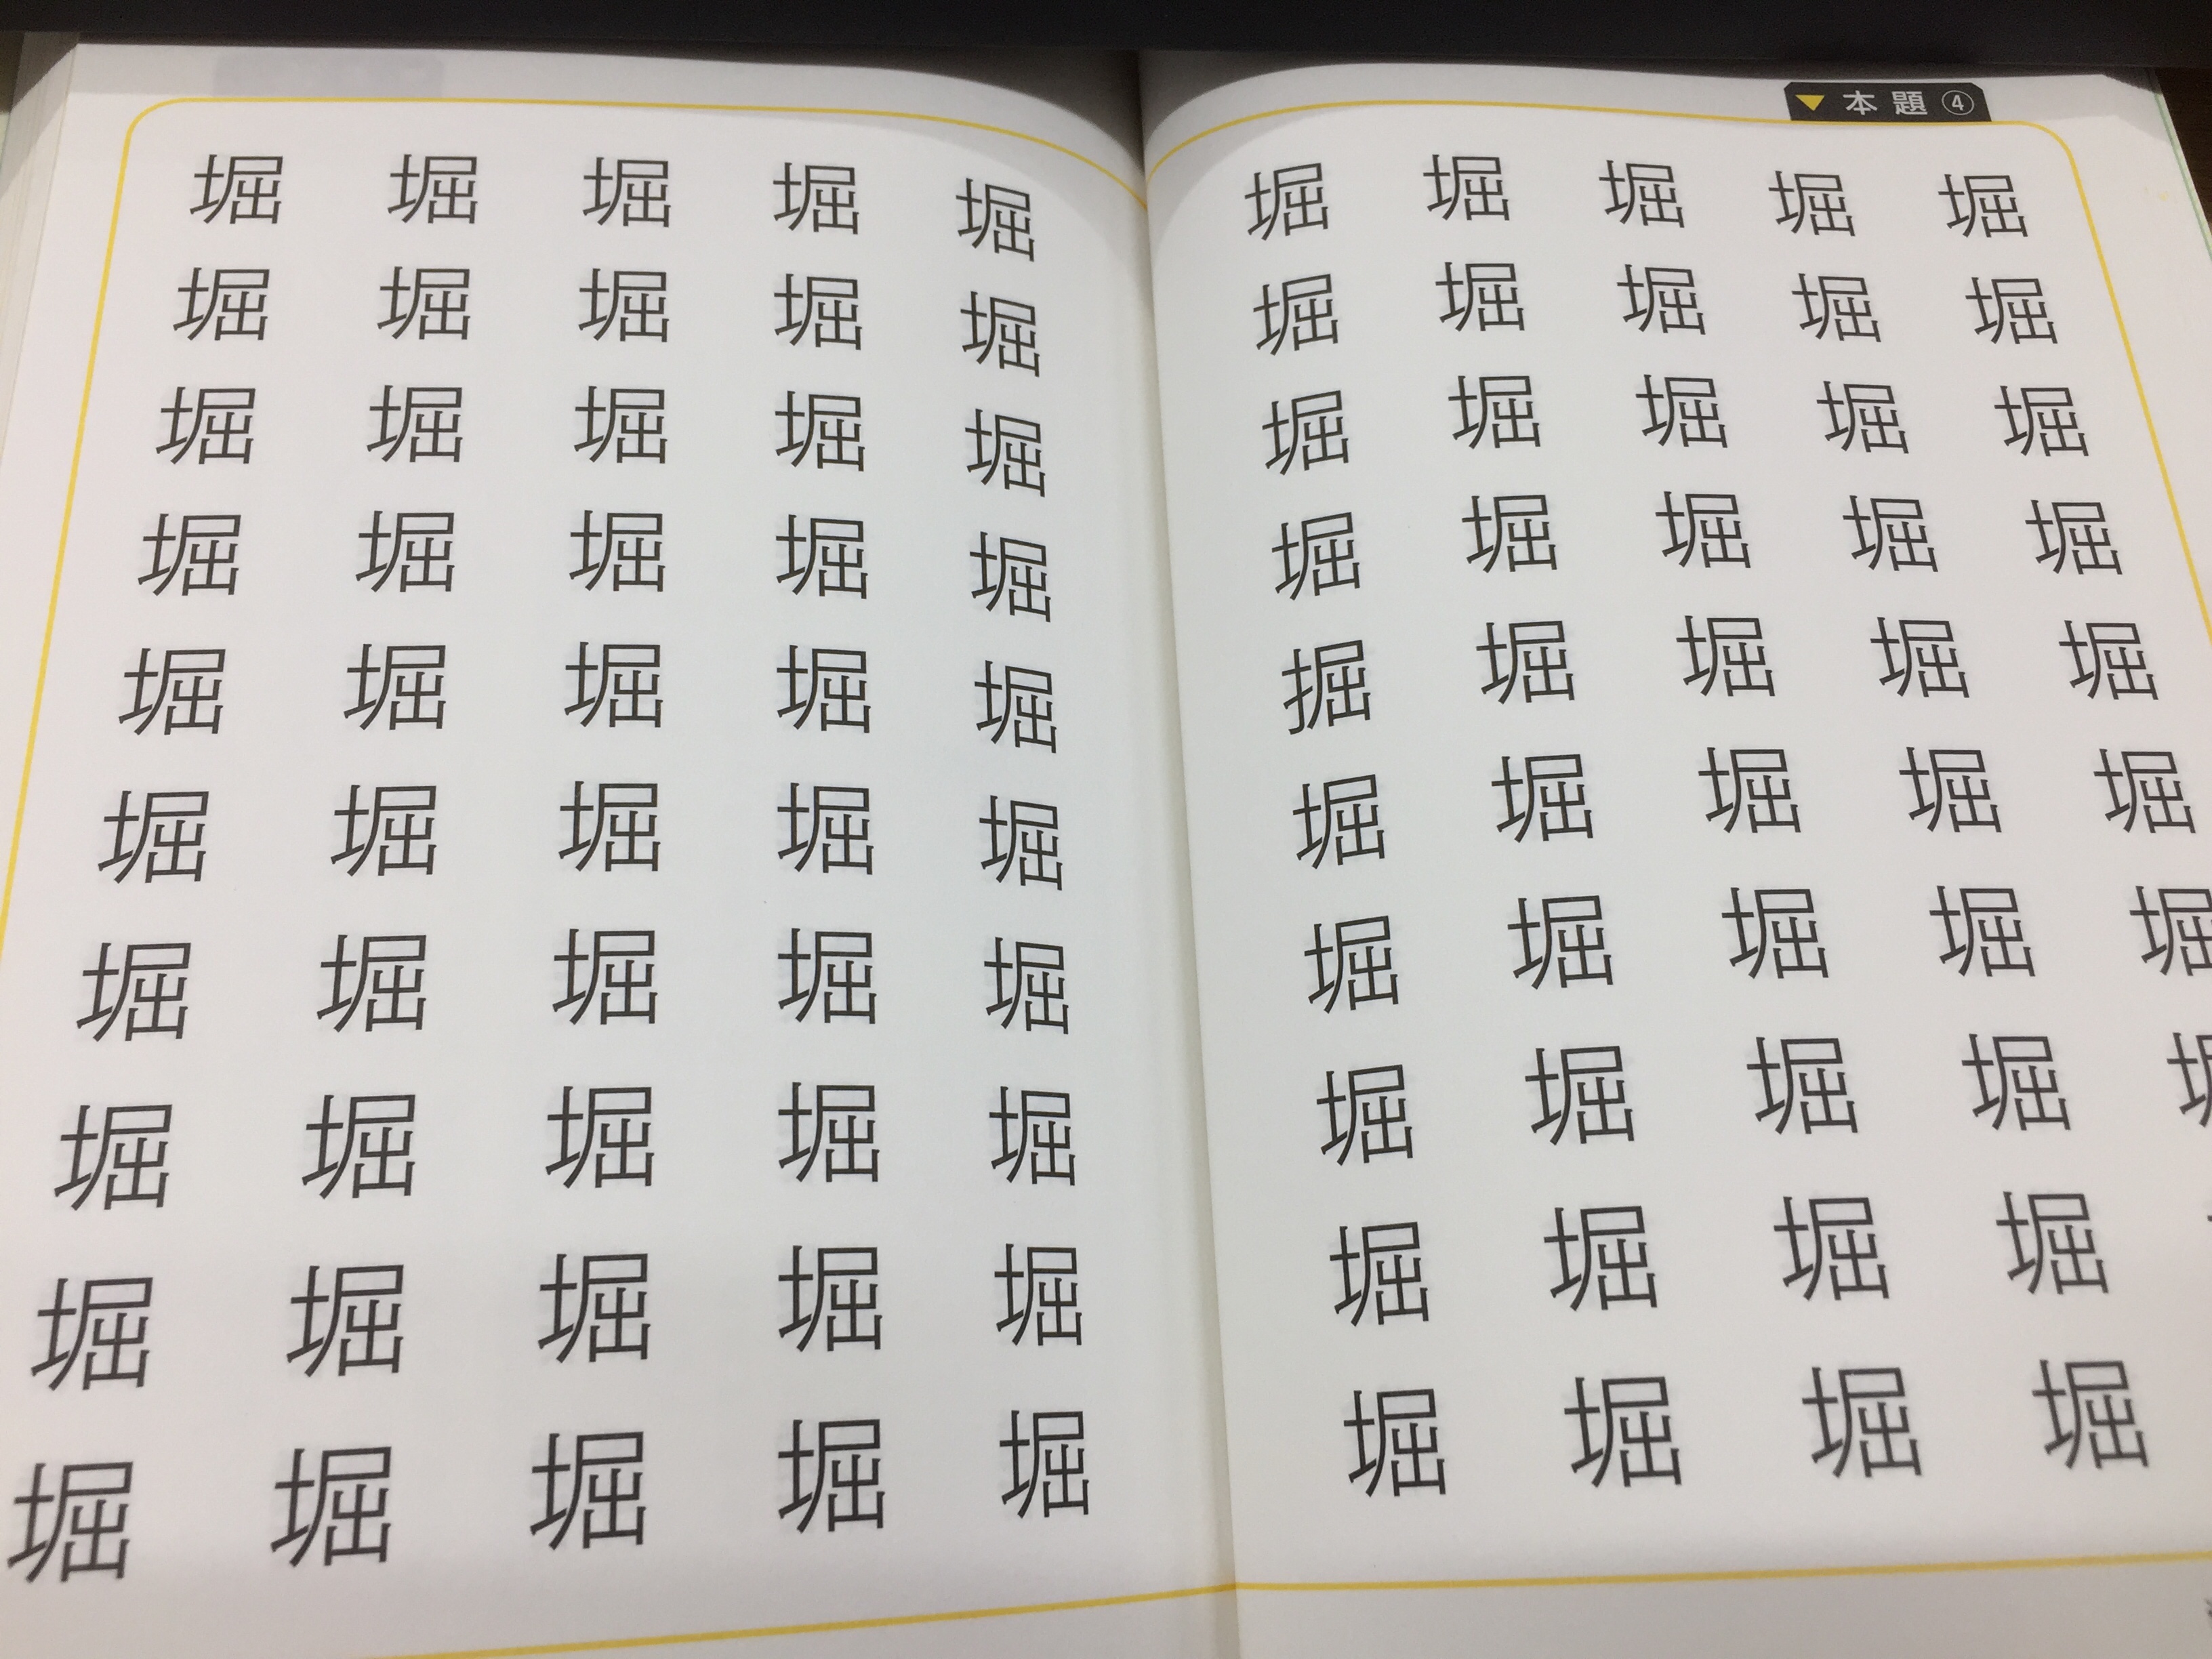 堀 堀 堀 堀 堀
堀 堀 堀 堀 堀
堀 堀 堀 堀 堀
堀 堀 堀 堀 堀
堀 堀 堀 堀 堀
堀 堀 堀 堀 堀
堀 堀 堀 堀 堀
堀 堀 堀 堀 堀
堀 堀 堀 堀 堀
堀 堀 堀 堀 堀
▼ 本題④
堀 堀 堀 堀 堀
堀 堀 堀 堀 堀
堀 堀 堀 堀 堀
堀 堀 堀 堀 堀
掘 堀 堀 堀 堀
堀 堀 堀 堀 堀
堀 堀 堀 堀 堀
堀 堀 堀 堀
堀 堀 堀 堀
堀 堀 堀 堀